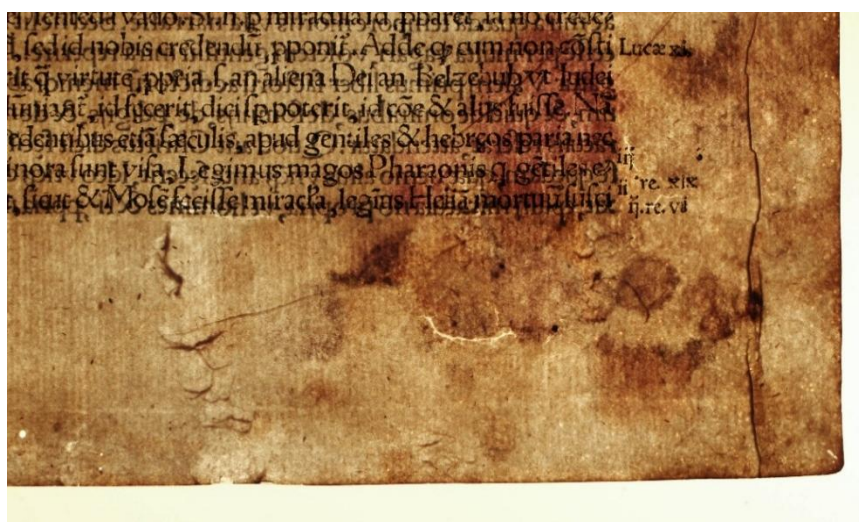 miracula id, pparet, ia nō crede
, sed id nobis credendū, pponit. Adde q, cum non cōsti
rit q̄ virtute, ppria, s. an aliena Dei an Belzebub vt Iudei
id fecerit, dici sp poterit, id cōe & aliis fuisse. Nā
dentibus etiā sæculis, apud gentiles & hebreos paria nec
inora sunt visa, Legimus magos Pharaonis q gētiles e
, sicut & Mosē fecisse miracła, legims Heliā mortuū susci
Lucæ xi.
iij
ij re. xix
ij. re. vi